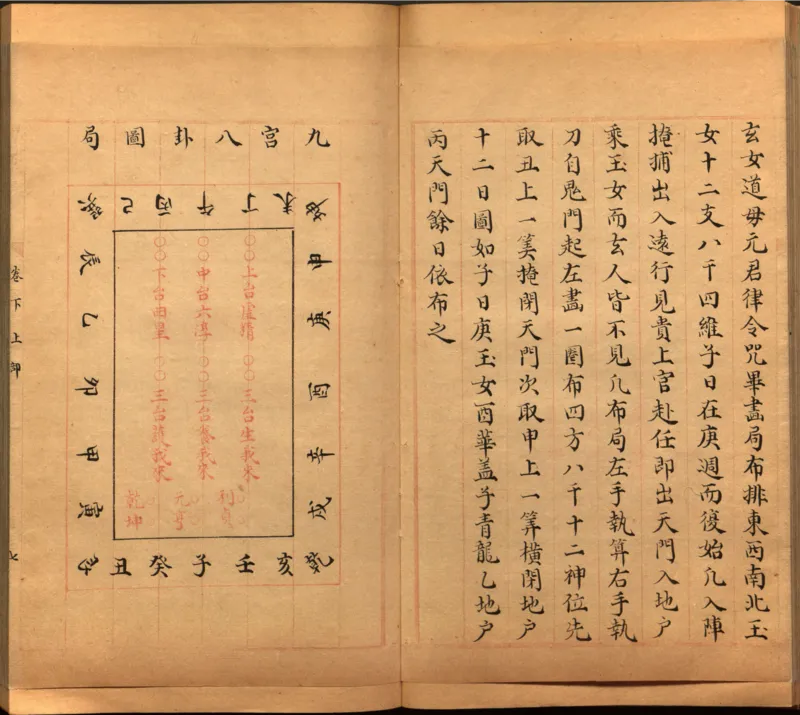 玄女道毋元君律令咒畢畫局布排東西南北玉
女十二支八千四維子日在庚週而復始凢入陣
掩捕出入遠行見貴上官赴任即出天門入地户
乘玉女而玄人皆不見凢布局左手執算右手執
刀自鬼門起左畫一圈布四方八千十二神位先
取丑上一筭掩閉天門次取申上一筭橫閉地户
十二日圖如子日庚玉女酉華盖子青龍乙地户
丙天門餘日依布之
九宮八卦圖局
未丁午丙巳巽
申庚酉辛戌
亥壬子癸丑
辰乙卯甲寅
○○上台虛精 ○○三台生我來
○○中台六淳 ○○三台養我來
○○下台曲星 ○○三台護我來
利貞
元亨
乾坤
卷下
七